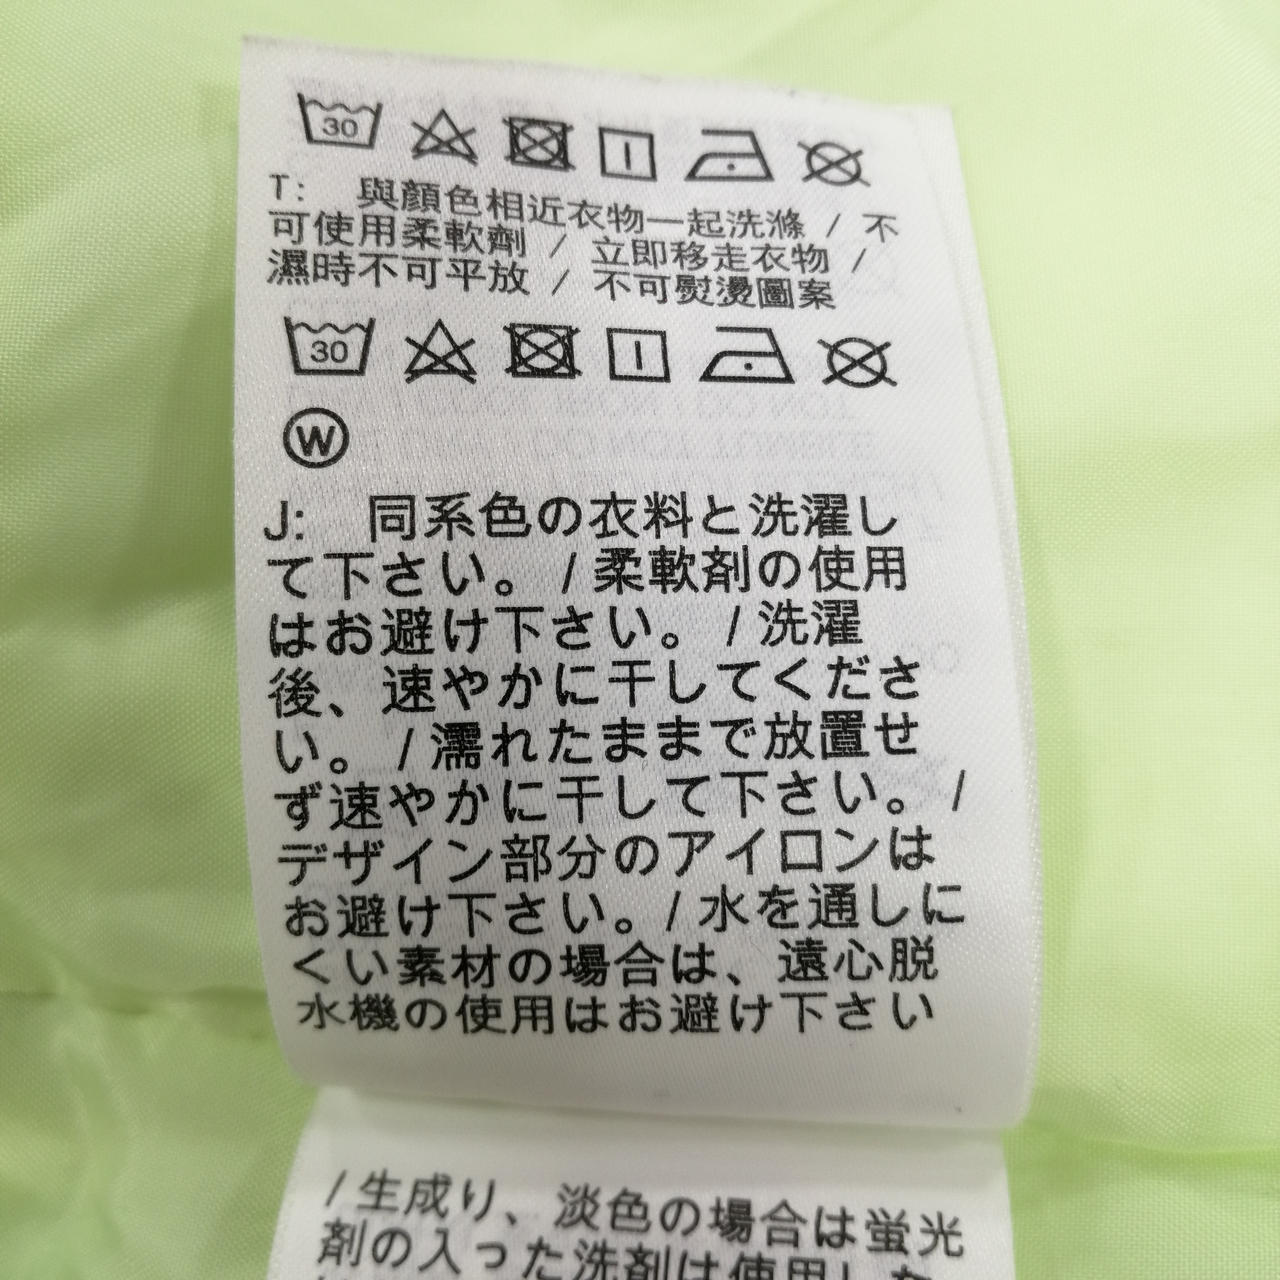 30
T: 與顏色相近衣物一起洗滌 / 不
可使用柔軟劑 / 立即移走衣物 /
濕時不可平放 / 不可熨燙圖案
30
W
J: 同系色の衣料と洗濯し
て下さい。 / 柔軟剤の使用
はお避け下さい。 / 洗濯
後、速やかに干してくださ
い。 / 濡れたままで放置せ
ず速やかに干して下さい。 /
デザイン部分のアイロンは
お避け下さい。 / 水を通しに
くい素材の場合は、遠心脱
水機の使用はお避け下さい
/ 生成り、淡色の場合は蛍光
剤の入った洗剤は使用した